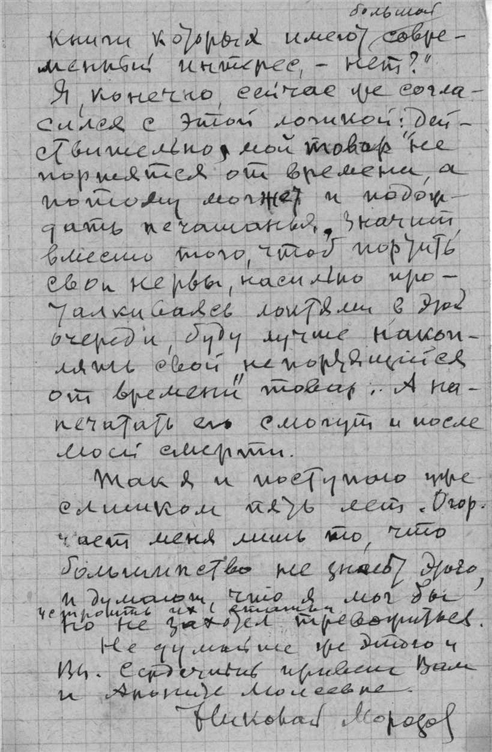 большой
книги которыя имеют совре-
менный интерес, - нет?"
Я, конечно, сейчас же согла-
сился с этой логикой: дей-
ствительно, мой товар "не
портится от времени, а
потому может и подож-
дать печатанья. Значит,
вместо того, чтоб портить
свои нервы, насильно про-
талкиваясь локтями в этой
очереди, буду лучше накоп-
лять свой "непортящийся
от времени" товар. А на-
печатать его смогут и после
моей смерти.
Так я и поступаю уже
слишком пять лет. Огор-
чает меня лишь то, что
большинство не знает этого,
и думают что я мог бы
устроить их статьи
но не захотел тревожиться.
Не думайте же этого и
Вы. Сердечный привет Вам
и Моисеевне.
Николай Морозов